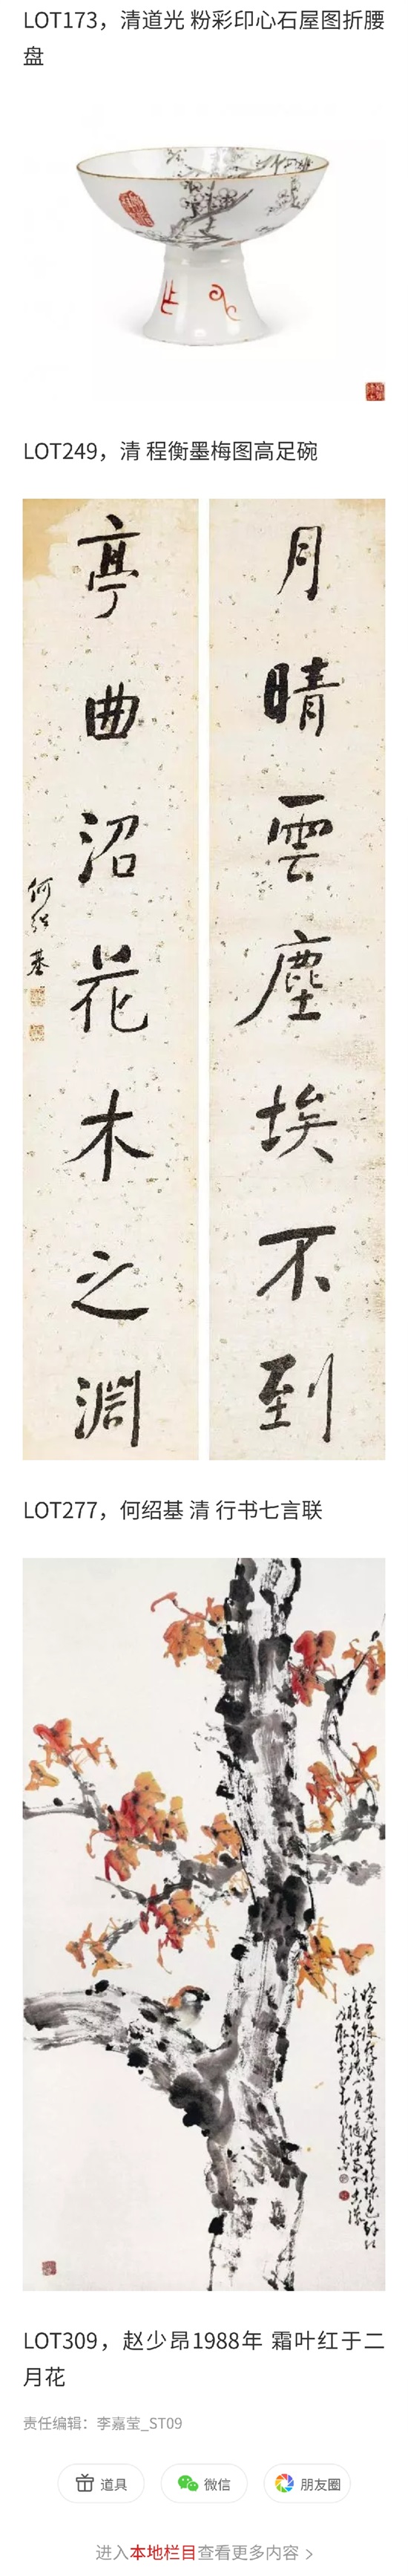 LOT173，清道光 粉彩印心石屋图折腰
盘
LOT249，清 程衡墨梅图高足碗
月晴雲塵埃不到
亭曲沼花木之淵
何紹基
LOT277，何绍基 清 行书七言联
LOT309，赵少昂1988年 霜叶红于二
月花
责任编辑：李嘉莹_ST09
道具
微信
朋友圈
进入本地栏目查看更多内容 >